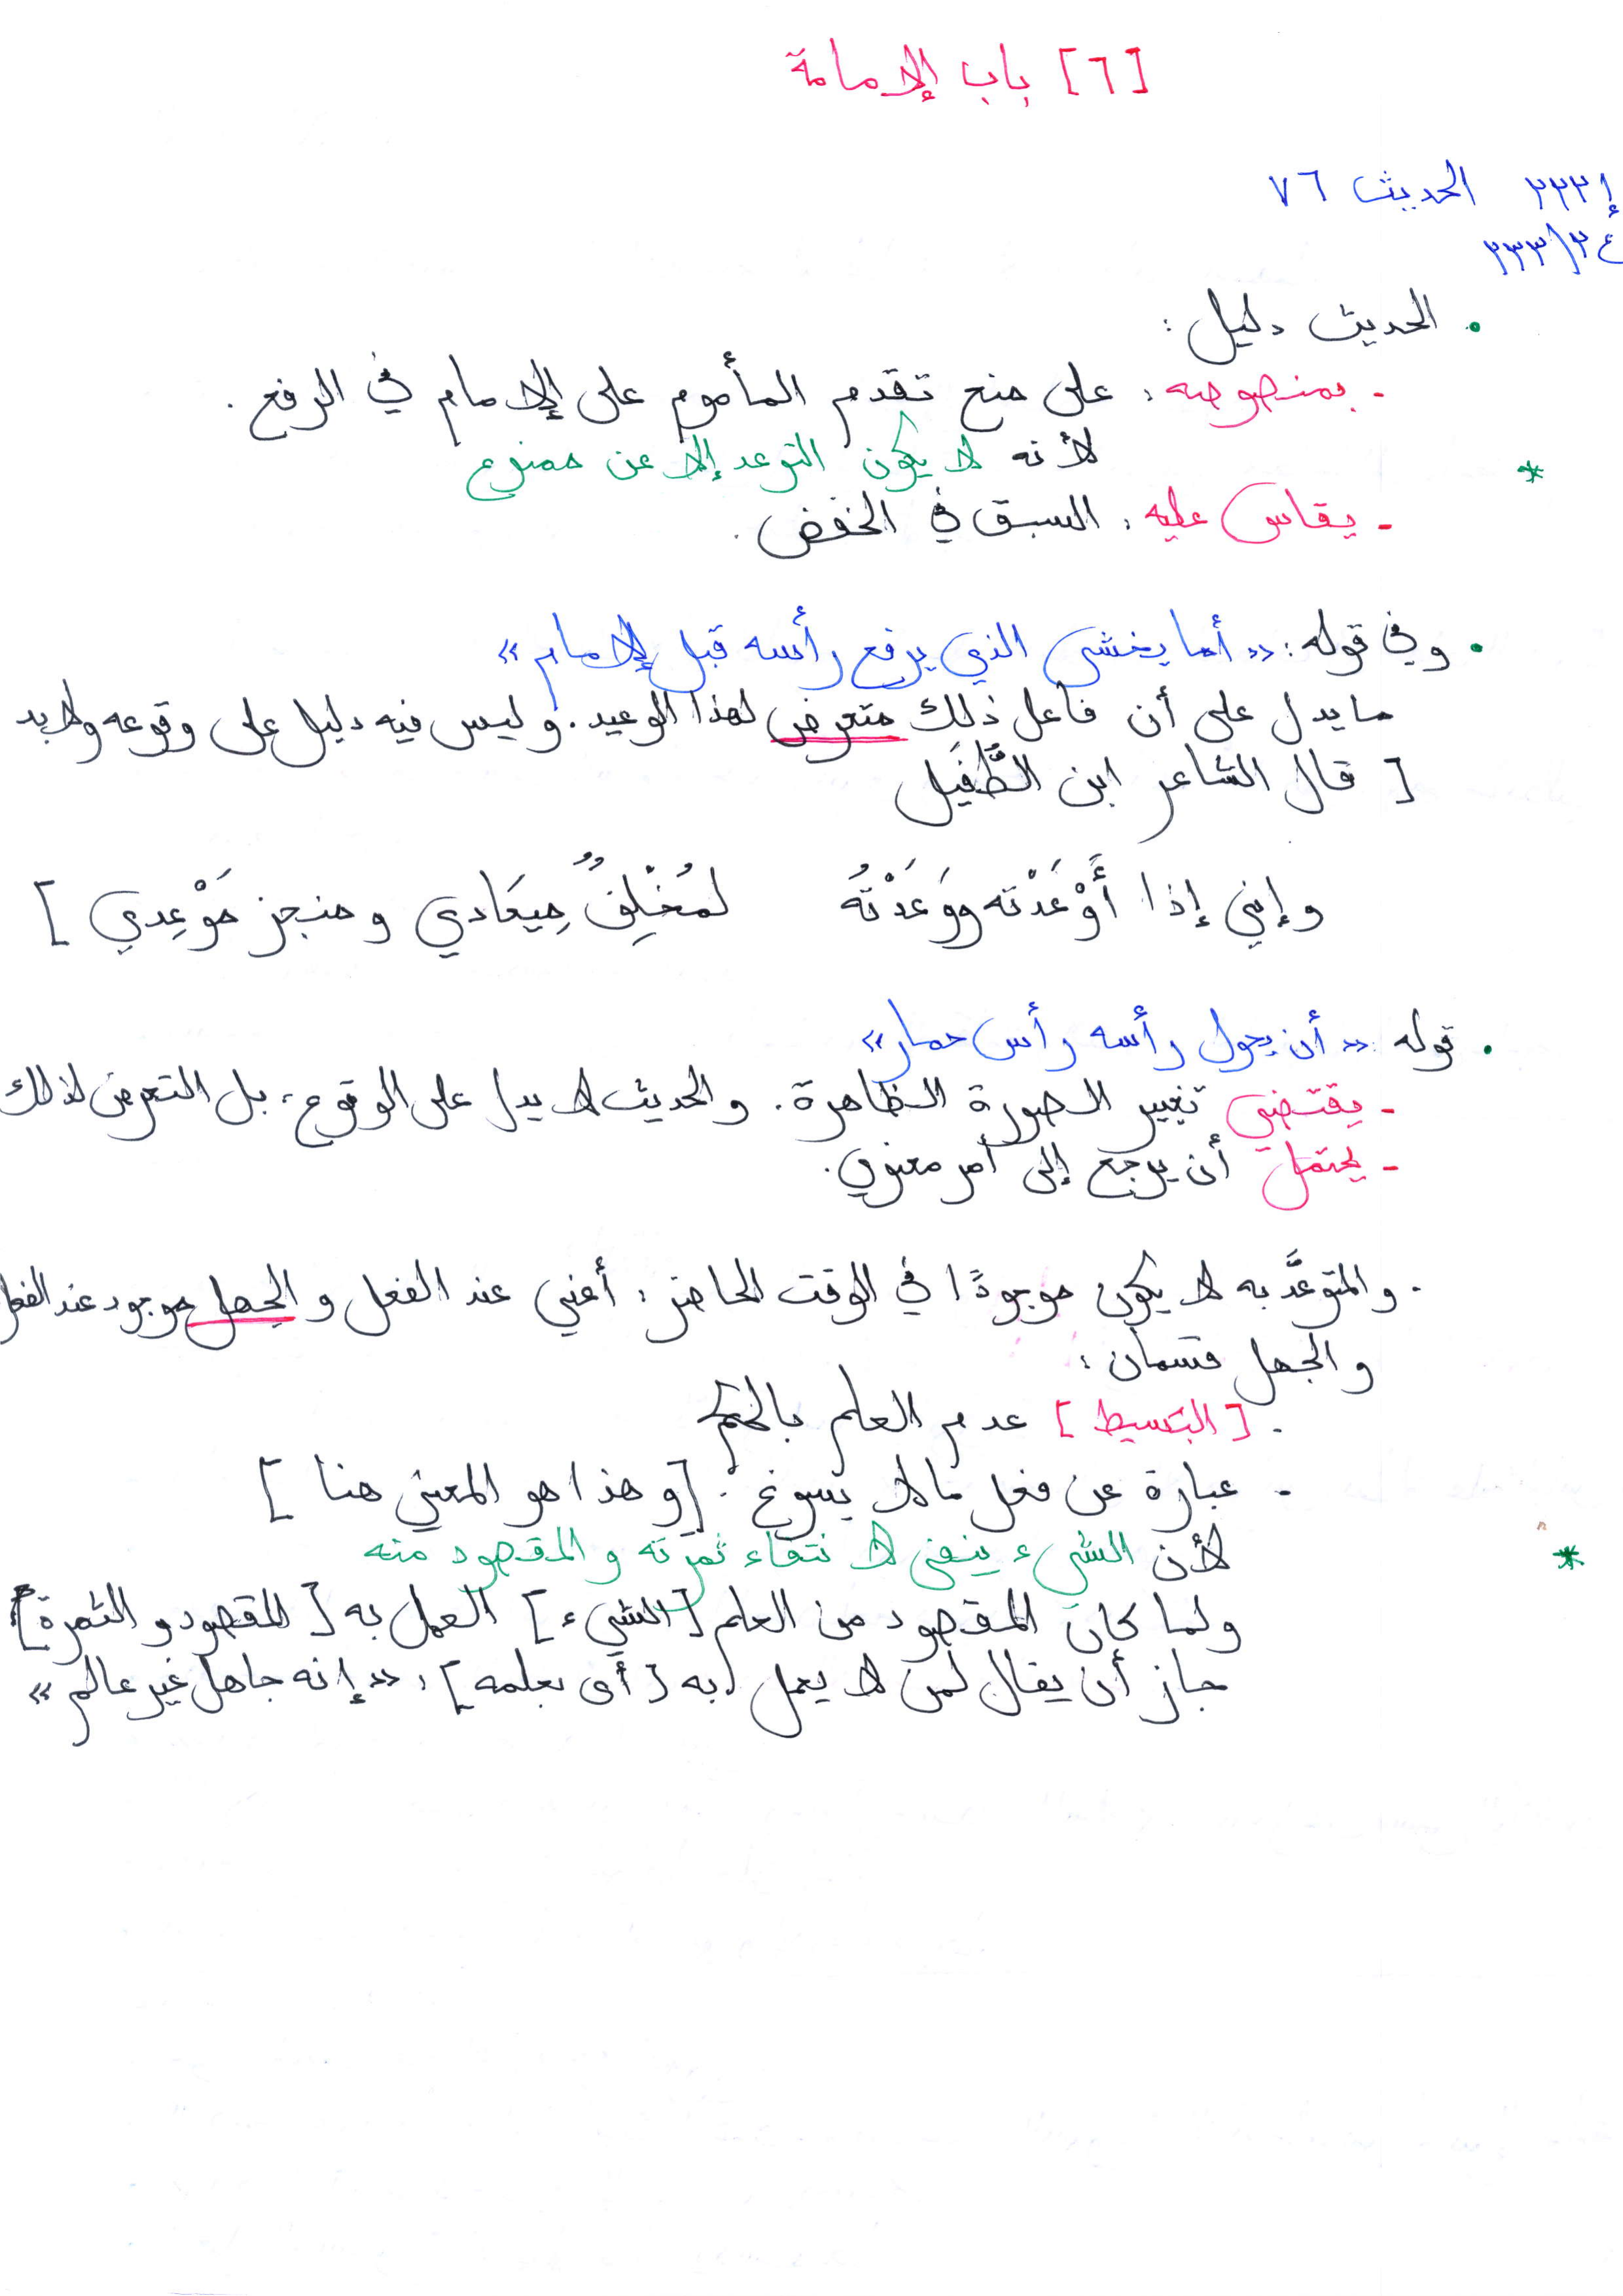 [٦] باب الإمامة
إ ٢٢٣ الحديث ٧٦
ع ٢/٢٣٣
• الحديث دليل:
- بمنصوصه: على منع تقدم المأموم على الإمام في الرفع.
* لأنه لا يكون التوعد إلا عن ممنوع
- يقاس عليه: السبق في الخفض.
• وفي قوله: «أما يخشى الذي يرفع رأسه قبل الإمام»
ما يدل على أن فاعل ذلك متعرض لهذا الوعيد. وليس فيه دليل على وقوعه ولا بد
[ قال الشاعر ابن الطُّفَيل
وإني إذا أَوْعَدْته ووَعَدْتُه لمُخْلِفٌ مِيعَادي ومنجز مَوْعِدي ]
• قوله: «أن يحول رأسه رأس حمار»
- يقتضي تغيير الصورة الظاهرة. والحديث لا يدل على الوقوع، بل التعرض لذلك
- يحتمل أن يرجع إلى أمر معنوي.
• والمتوعَّد به لا يكون موجودًا في الوقت الحاضر: أعني عند الفعل والجهل موجود عند الفعل
والجهل قسمان:
- [البسيط] عدم العلم بالحكم
- عبارة عن فعل مالا يسوغ. [وهذا هو المعني هنا]
* لأن الشيء ينفى لانتفاء ثمرته والمقصود منه
ولما كان المقصود من العلم [الشيء] العمل به [المقصود والثمرة]
جاز أن يقال لمن لا يعمل به [أي بعلمه]: «إنه جاهل غير عالم»